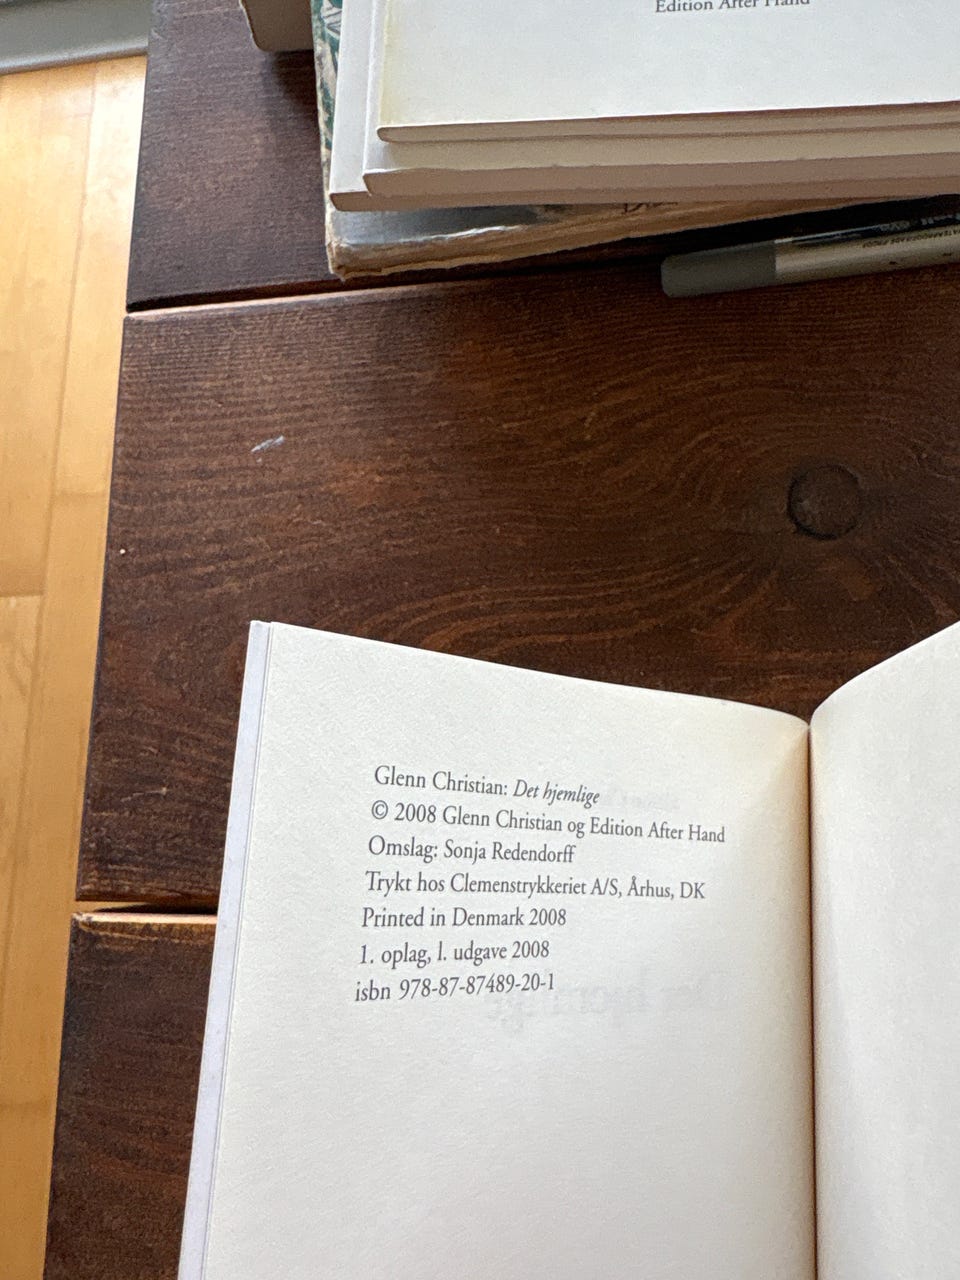 Edition After Hand
Glenn Christian: Det hjemlige
© 2008 Glenn Christian og Edition After Hand
Omslag: Sonja Redendorff
Trykt hos Clemenstrykkeriet A/S, Århus, DK
Printed in Denmark 2008
1. oplag, l. udgave 2008
isbn 978-87-87489-20-1